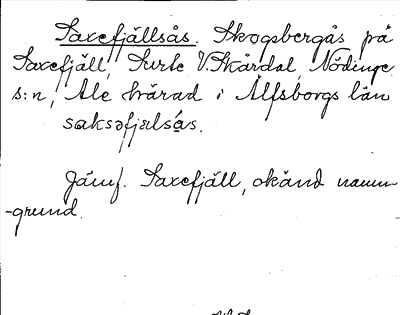 Saxefjällsås. Skogsbergås på
Saxefjäll, Surte V. Skårdal, Nödinge
s:n, Ale härad i Älfsborgs län
saksəfjælsås.
Jämf. Saxefjäll, okänd namn-
-grund.